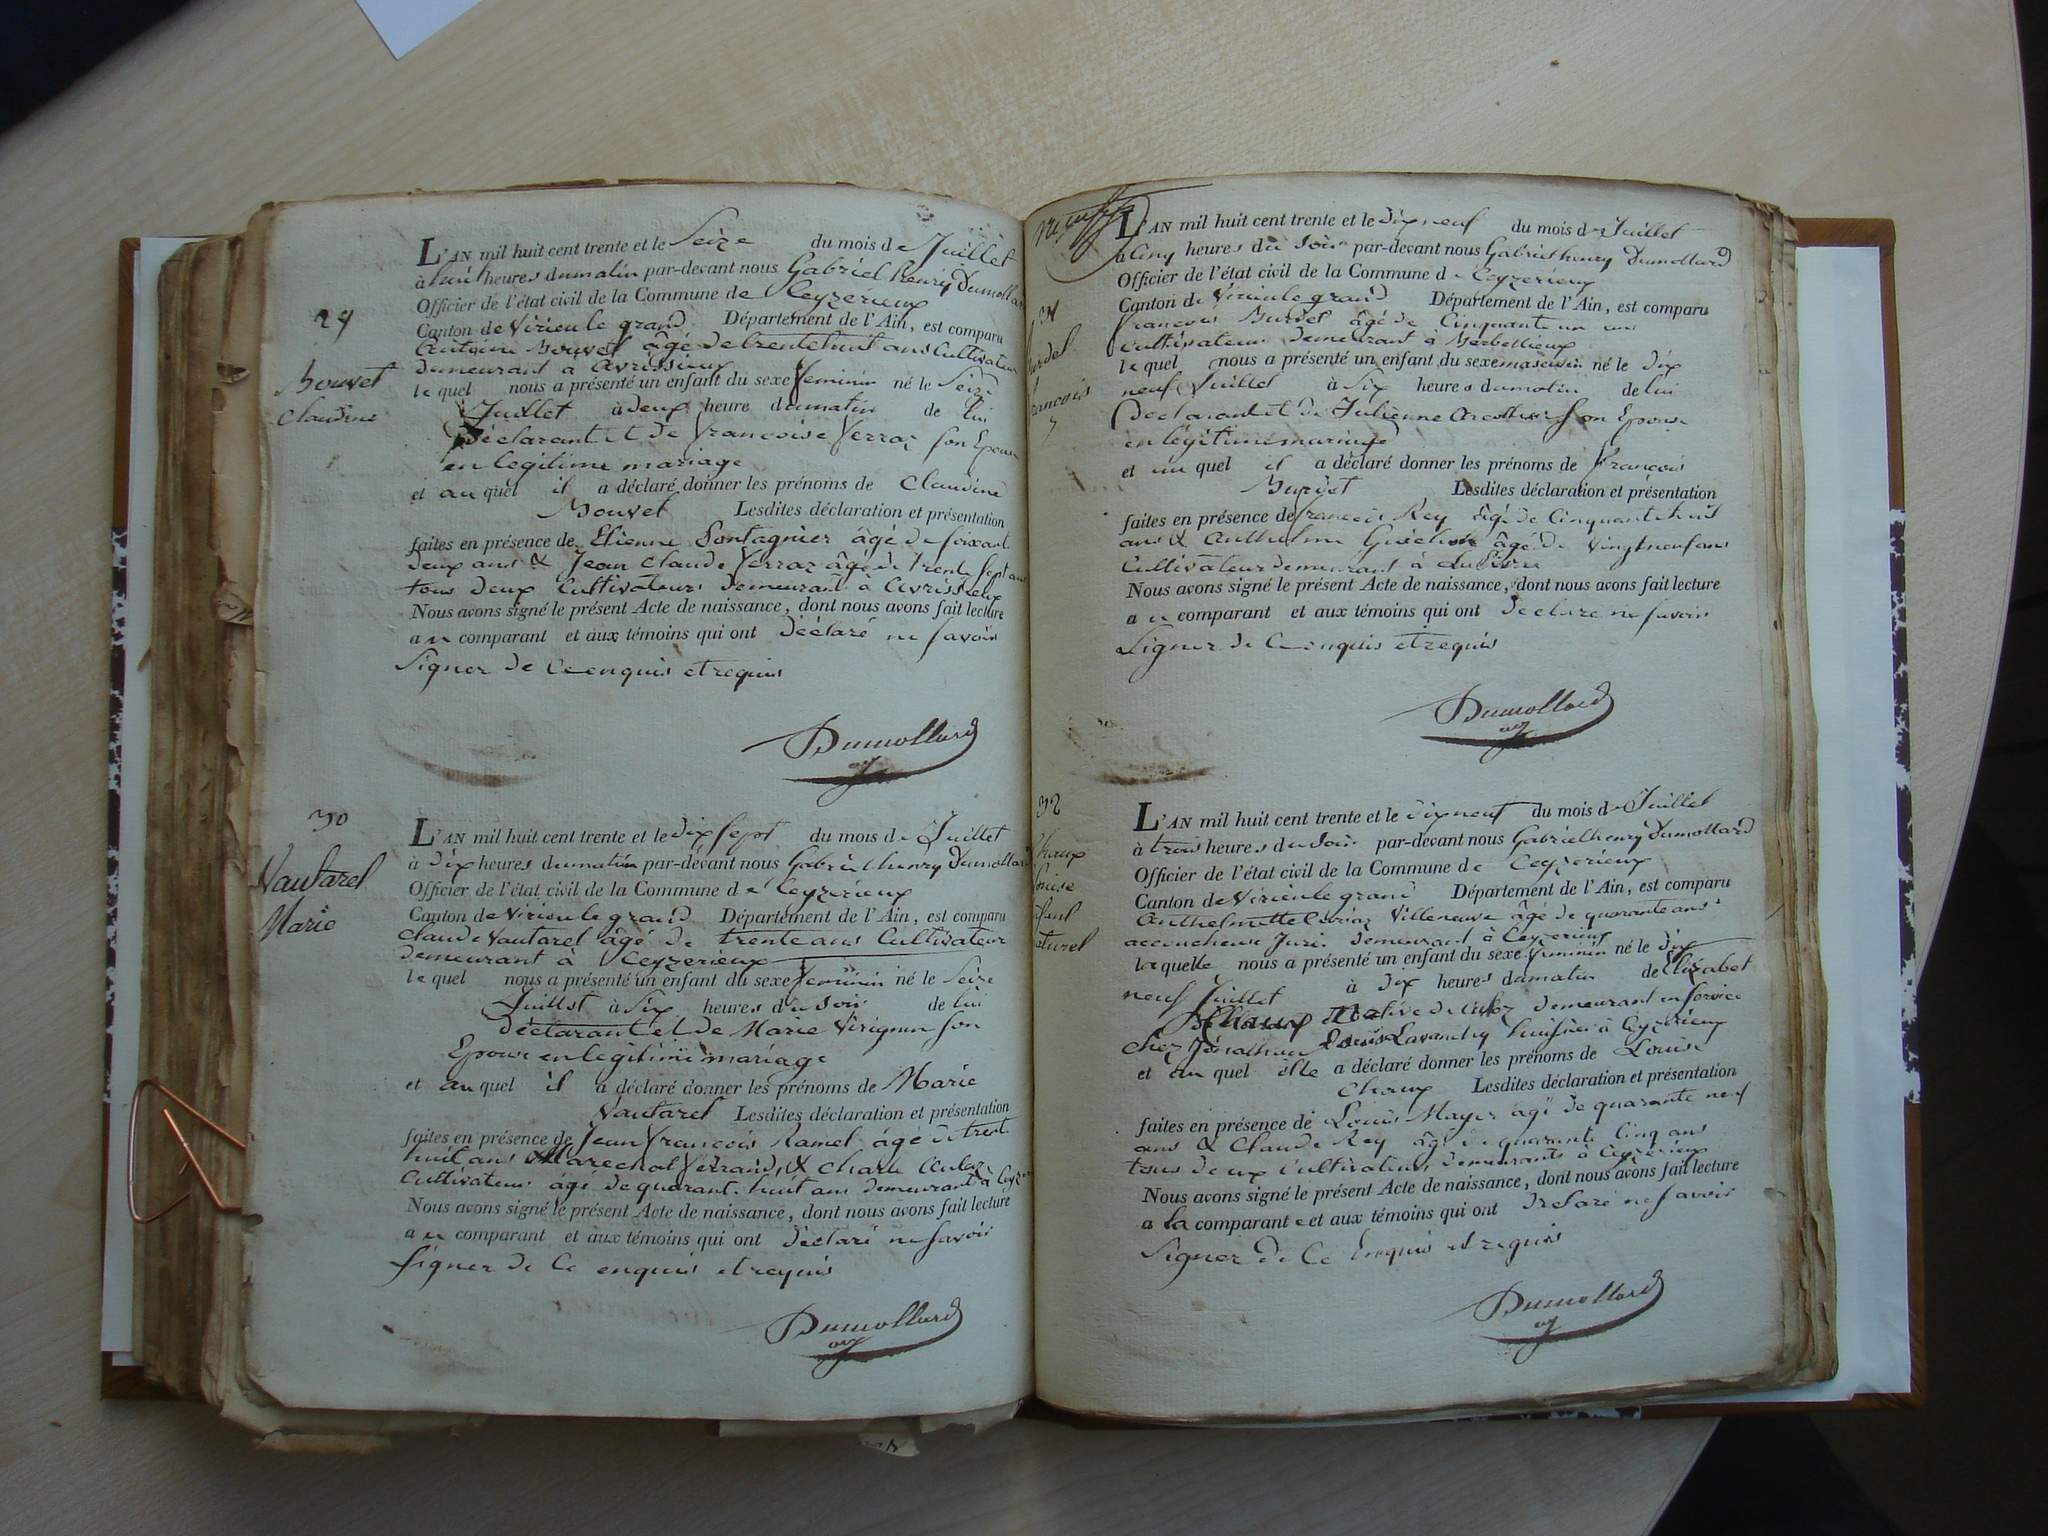 29
Bouvet
Claudine
L'AN mil huit cent trente et le Seize du mois de Juillet
à huit heures du matin par-devant nous Gabriel henry Dumollard
Officier de l'état civil de la Commune de Ceyzerieux
Canton de Virieu le grand Département de l'Ain, est comparu
Antoine Bouvet âgé de trente huit ans Cultivateur
demeurant à Avrissieux
le quel nous a présenté un enfant du sexe feminin né le Seize
Juillet à deux heure du matin de lui
Déclarant et de Francoise Verraz son Epouse
en legitime mariage
et au quel il a déclaré donner les prénoms de Claudine
Bouvet Lesdites déclaration et présentation
faites en présence de Etienne Pontagnier âgé de soixant
deux ans & Jean Claude Verraz âgé de trente sept ans
tous deux Cultivateurs demeurant à Avrissieux
Nous avons signé le présent Acte de naissance, dont nous avons fait lecture
au comparant et aux témoins qui ont déclaré ne savoir
Signer de Ce enquis et requis
Dumollard
30
Vautaret
Marie
L'AN mil huit cent trente et le dix sept du mois de Juillet
à dix heures du matin par-devant nous Gabriel henry Dumollard
Officier de l'état civil de la Commune de Ceyzerieux
Canton de Virieu le grand Département de l'Ain, est comparu
Claude Vautaret âgé de trente ans Cultivateur
demeurant à Ceyzerieux
le quel nous a présenté un enfant du sexe feminin né le Seize
Juillet à Six heures du soir de lui
déclarant et de Marie Virignin son
Epouse en legitime mariage
et au quel il a déclaré donner les prénoms de Marie
Vautaret Lesdites déclaration et présentation
faites en présence de Jean Francois Ramel âgé de trent
huit ans Marechal ferrand, & Charle
Cultivateur âgé de quarant huit ans demeurant à
Nous avons signé le présent Acte de naissance, dont nous avons fait lecture
au comparant et aux témoins qui ont déclaré ne savoir
signer de Ce enquis et requis
Dumollard
31
L'AN mil huit cent trente et le dix neuf du mois de Juillet
à Cinq heures du Soir par-devant nous Gabriel henry Dumollard
Officier de l'état civil de la Commune de Ceyzerieux
Canton de Virieu le grand Département de l'Ain, est comparu
francois Burdet âgé de Cinquante un ans
cultivateur demeurant à
le quel nous a présenté un enfant du sexe masculin né le dix
neuf Juillet à Six heures du matin de lui
Déclarant et de Julienne son Epouse
en légitime mariage
et au quel il a déclaré donner les prénoms de Francois
Burdet Lesdites déclaration et présentation
faites en présence de francois Rey âgé de Cinquante huit
ans & Anthelme Guichon âgé de Vingt neuf ans
Cultivateur demeurant à
Nous avons signé le présent Acte de naissance, dont nous avons fait lecture
au comparant et aux témoins qui ont déclaré ne savoir
Signer de Ce enquis et requis
Dumollard
32
L'AN mil huit cent trente et le dix neuf du mois de Juillet
à trois heures du Soir par-devant nous Gabriel henry Dumollard
Officier de l'état civil de la Commune de Ceyzerieux
Canton de Virieu le grand Département de l'Ain, est comparu
Anthelmette Villeneuve âgé de quarante ans
accoucheuse Juré demeurant à Ceyzerieux
la quelle nous a présenté un enfant du sexe feminin né le dix
neuf Juillet à dix heures du matin de Elizabet
Chaux native de demeurant en service
chez Jonathan Louis Lavanchy huissier à Ceyzerieux
et au quel elle a déclaré donner les prénoms de Louise
Chaux Lesdites déclaration et présentation
faites en présence de Louis Mayer âgé de quarante neuf
ans & Claude Rey âgé de quarante Cinq ans
tous deux Cultivateurs demeurants à Ceyzerieux
Nous avons signé le présent Acte de naissance, dont nous avons fait lecture
a la comparante et aux témoins qui ont declaré ne savoir
Signer de Ce Enquis et requis
Dumollard